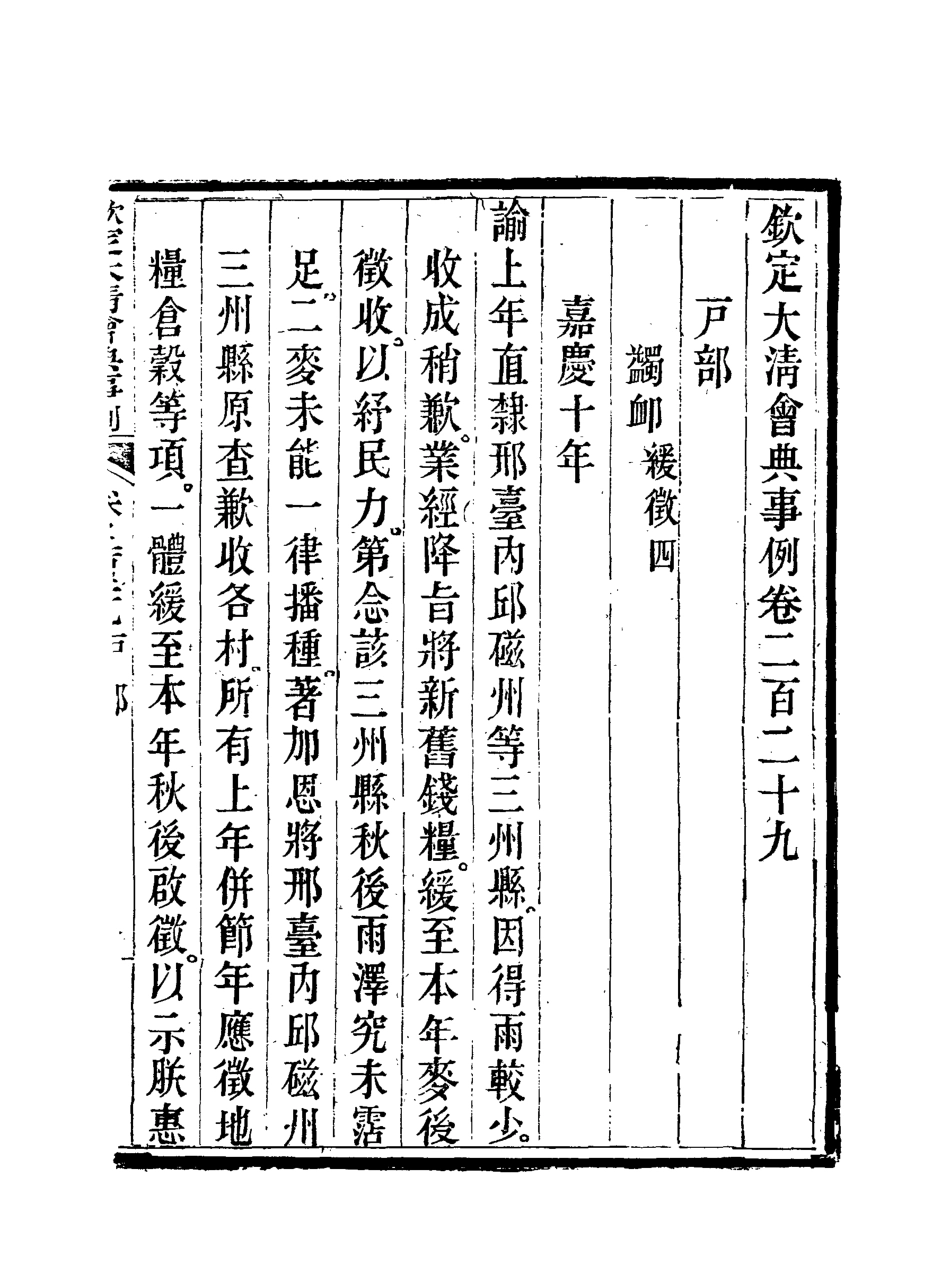 欽定大清會典事例卷二百二十九
戸部
蠲卹 緩徵四
嘉慶十年
諭上年直隸邢臺內邱磁州等三州縣因得雨較少。
收成稍歉。業經降旨將新舊錢糧。緩至本年麥後
徵收。以紓民力。第念該三州縣秋後雨澤究未霑
足。二麥未能一律播種。著加恩將邢臺內邱磁州
三州縣原查歉收各村。所有上年併節年應徵地
糧倉穀等項。一體緩至本年秋後啟徵。以示朕惠